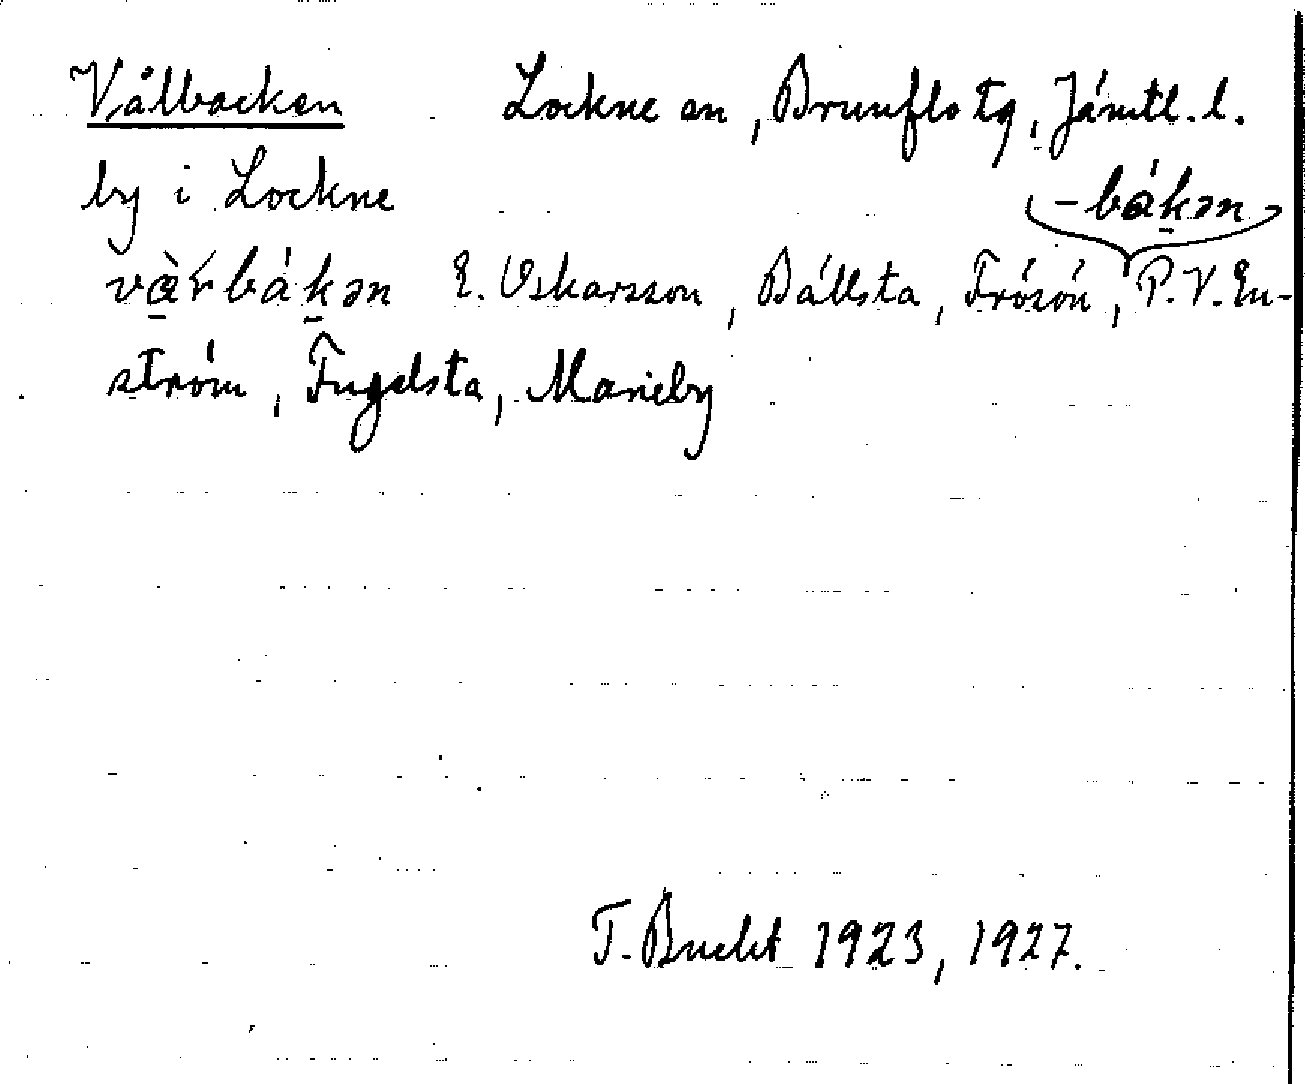 Vålbacken Lockne sn, Brunflo tg, Jämtl. l.
by i Lockne (-bákən)
vàrbákən E. Oskarsson, Bällsta, Frösön, P.V. En-
ström, Fugelsta, Marieby
T. Bucht 1923, 1927.